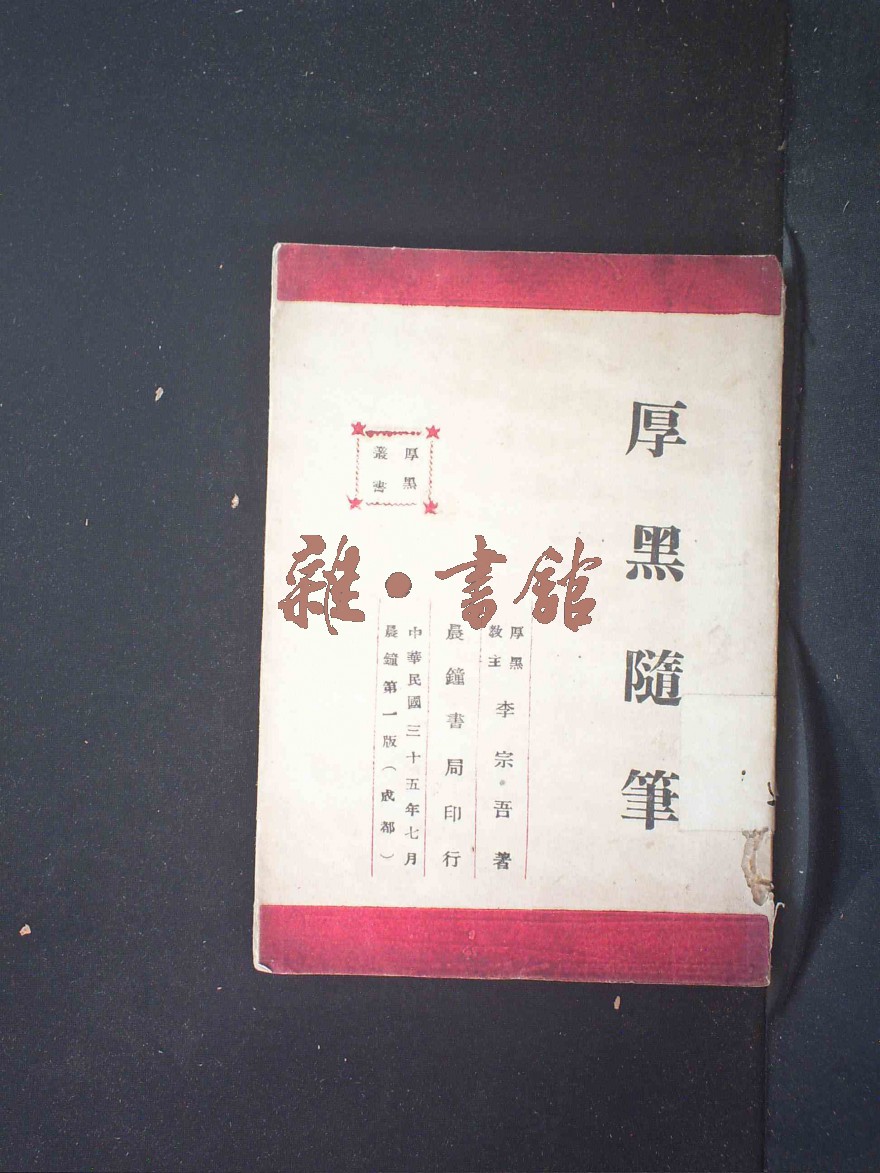 厚黑隨筆
厚黑
教主
李宗吾著
晨鐘書局印行
中華民國三十五年七月
晨鐘第一版（成都）
厚黑
叢書
雜·書館